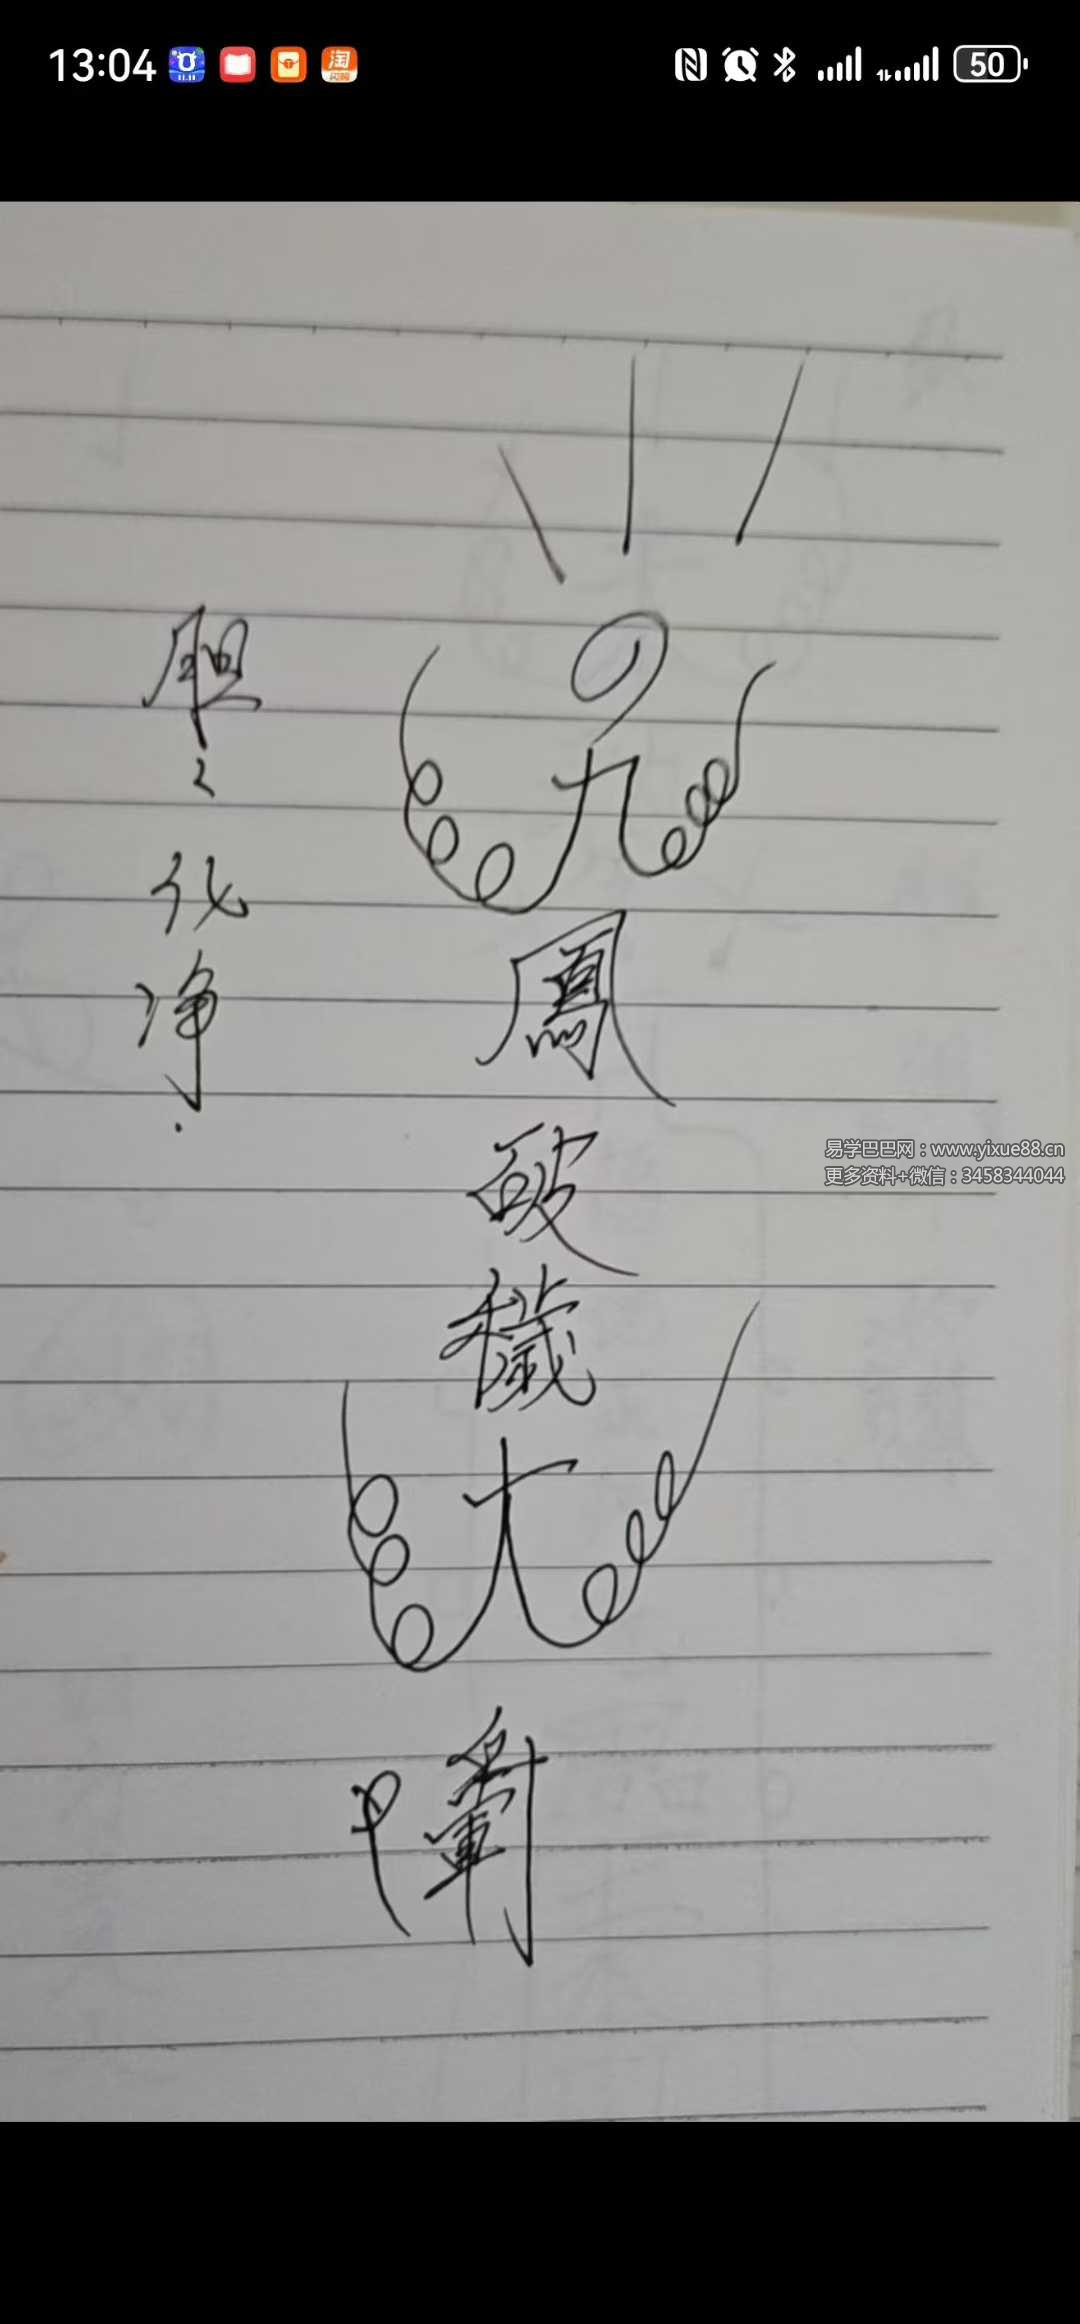 13:04
50
九
鳳
破
穢
大
将
化
净
易学巴巴网：www.yixue88.cn
更多资料+微信：3458344044